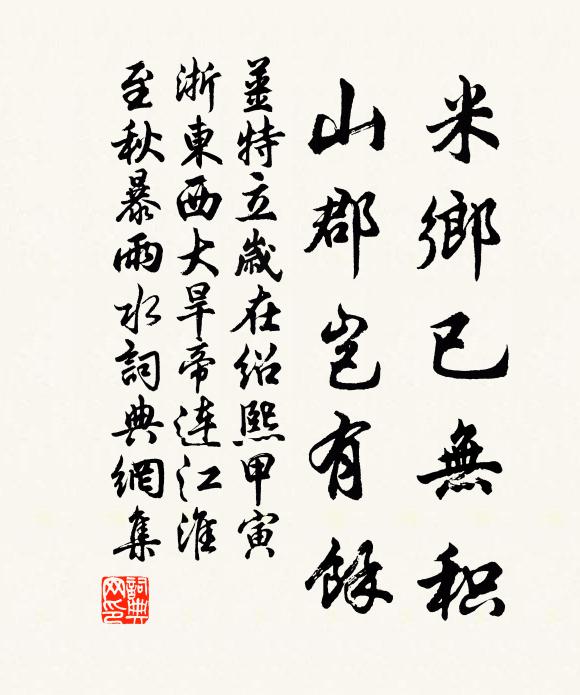 米鄉已無积
山郡岂有餘
薑特立歲在紹熙甲寅
浙東西大旱帝連江淮
至秋暴雨水詞典網集
詞典
网印